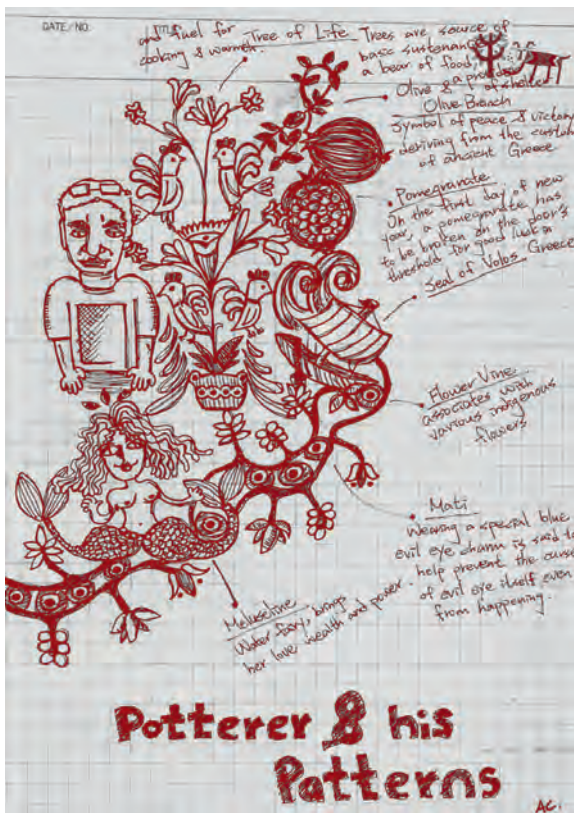 DATE/NO.
TITLE
and fuel for
cooking & warmer.
Tree of Life
Trees are source of
basic sustenance
a bear of food,
& a provider
of shelter
Olive
Olive Branch
Symbol of peace & victory
deriving from the custom
of ancient Greece
Pomegranate
On the first day of new
year, a pomegranate has
to be broken on the door's
threshold for good luck
Seal of Volos Greece
Flower Vine
associates with
various indigenous
flowers
Mati
Wearing a special blue
evil eye charm is said to
help prevent the curse
of evil eye itself even
from happening.
Meluseline
Water fairy, brings
her love wealth and power.
Potterer & his
Patterns
AC.